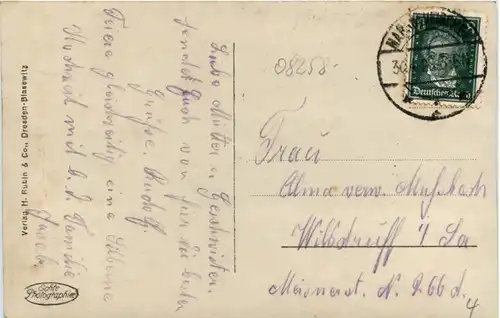 Liebe Mutter u. Geschwister.
sendet Euch von hier die besten
Grüße. Rudolf.
Feiere gleichzeitig eine Silberne
Hochzeit mit b. d. Familie
08258
Deutsches Reich
Frau
Alma verw.
Wilsdruff i/Sa
Meissnerst. N. 266 d.
4
Verlag H. Rubin & Co., Dresden-Blasewitz
Echte
Photographie